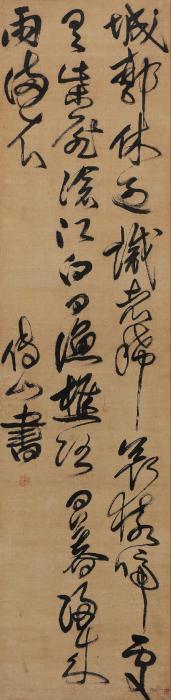 城郭休過識者稀哀猿啼處
有柴扉滄江白日漁樵路日暮歸來
雨滿衣
傅山書